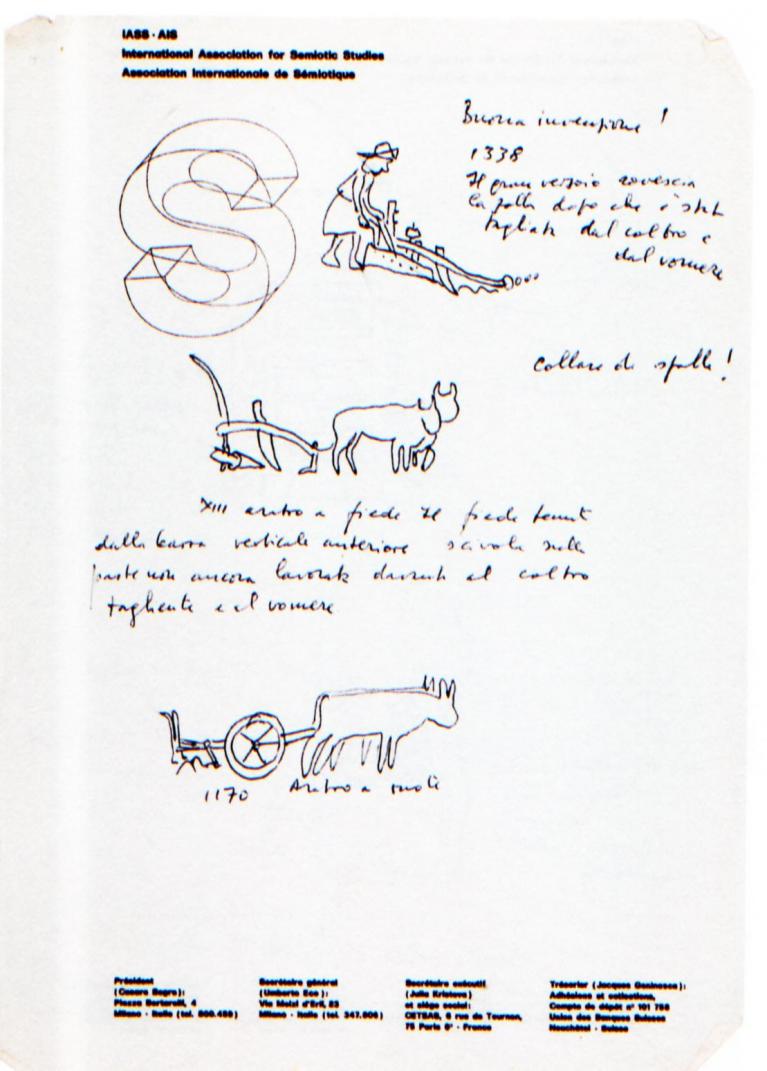 IASS · AIS
International Association for Semiotic Studies
Association Internationale de Sémiotique
S
Buona invenzione !
1338
Il gran versoio rovescia
la zolla dopo che è stata
tagliata dal coltro e
dal vomere
Collare da spalla !
XIII aratro a piede Il piede tenuto
dalla barra verticale anteriore scivola sulla
parte non ancora lavorata davanti al coltro
tagliente e al vomere
1170 Aratro a ruote
Président
(Cesare Segre):
Piazza Bertarelli, 4
Milano - Italie (tel.
Secrétaire général
(Umberto Eco):
Via Melzi d'Eril, 23
Milano - Italie (tel. 347.506)
Secrétaire exécutif
(Julia Kristeva)
et siège social:
CETSAS, 6 rue de Tournon,
75 Paris 6e - France
Trésorier (Jacques Geninasca):
Adhésions et cotisations,
Compte de dépôt n° 101
Union des Banques Suisses
Neuchâtel - Suisse